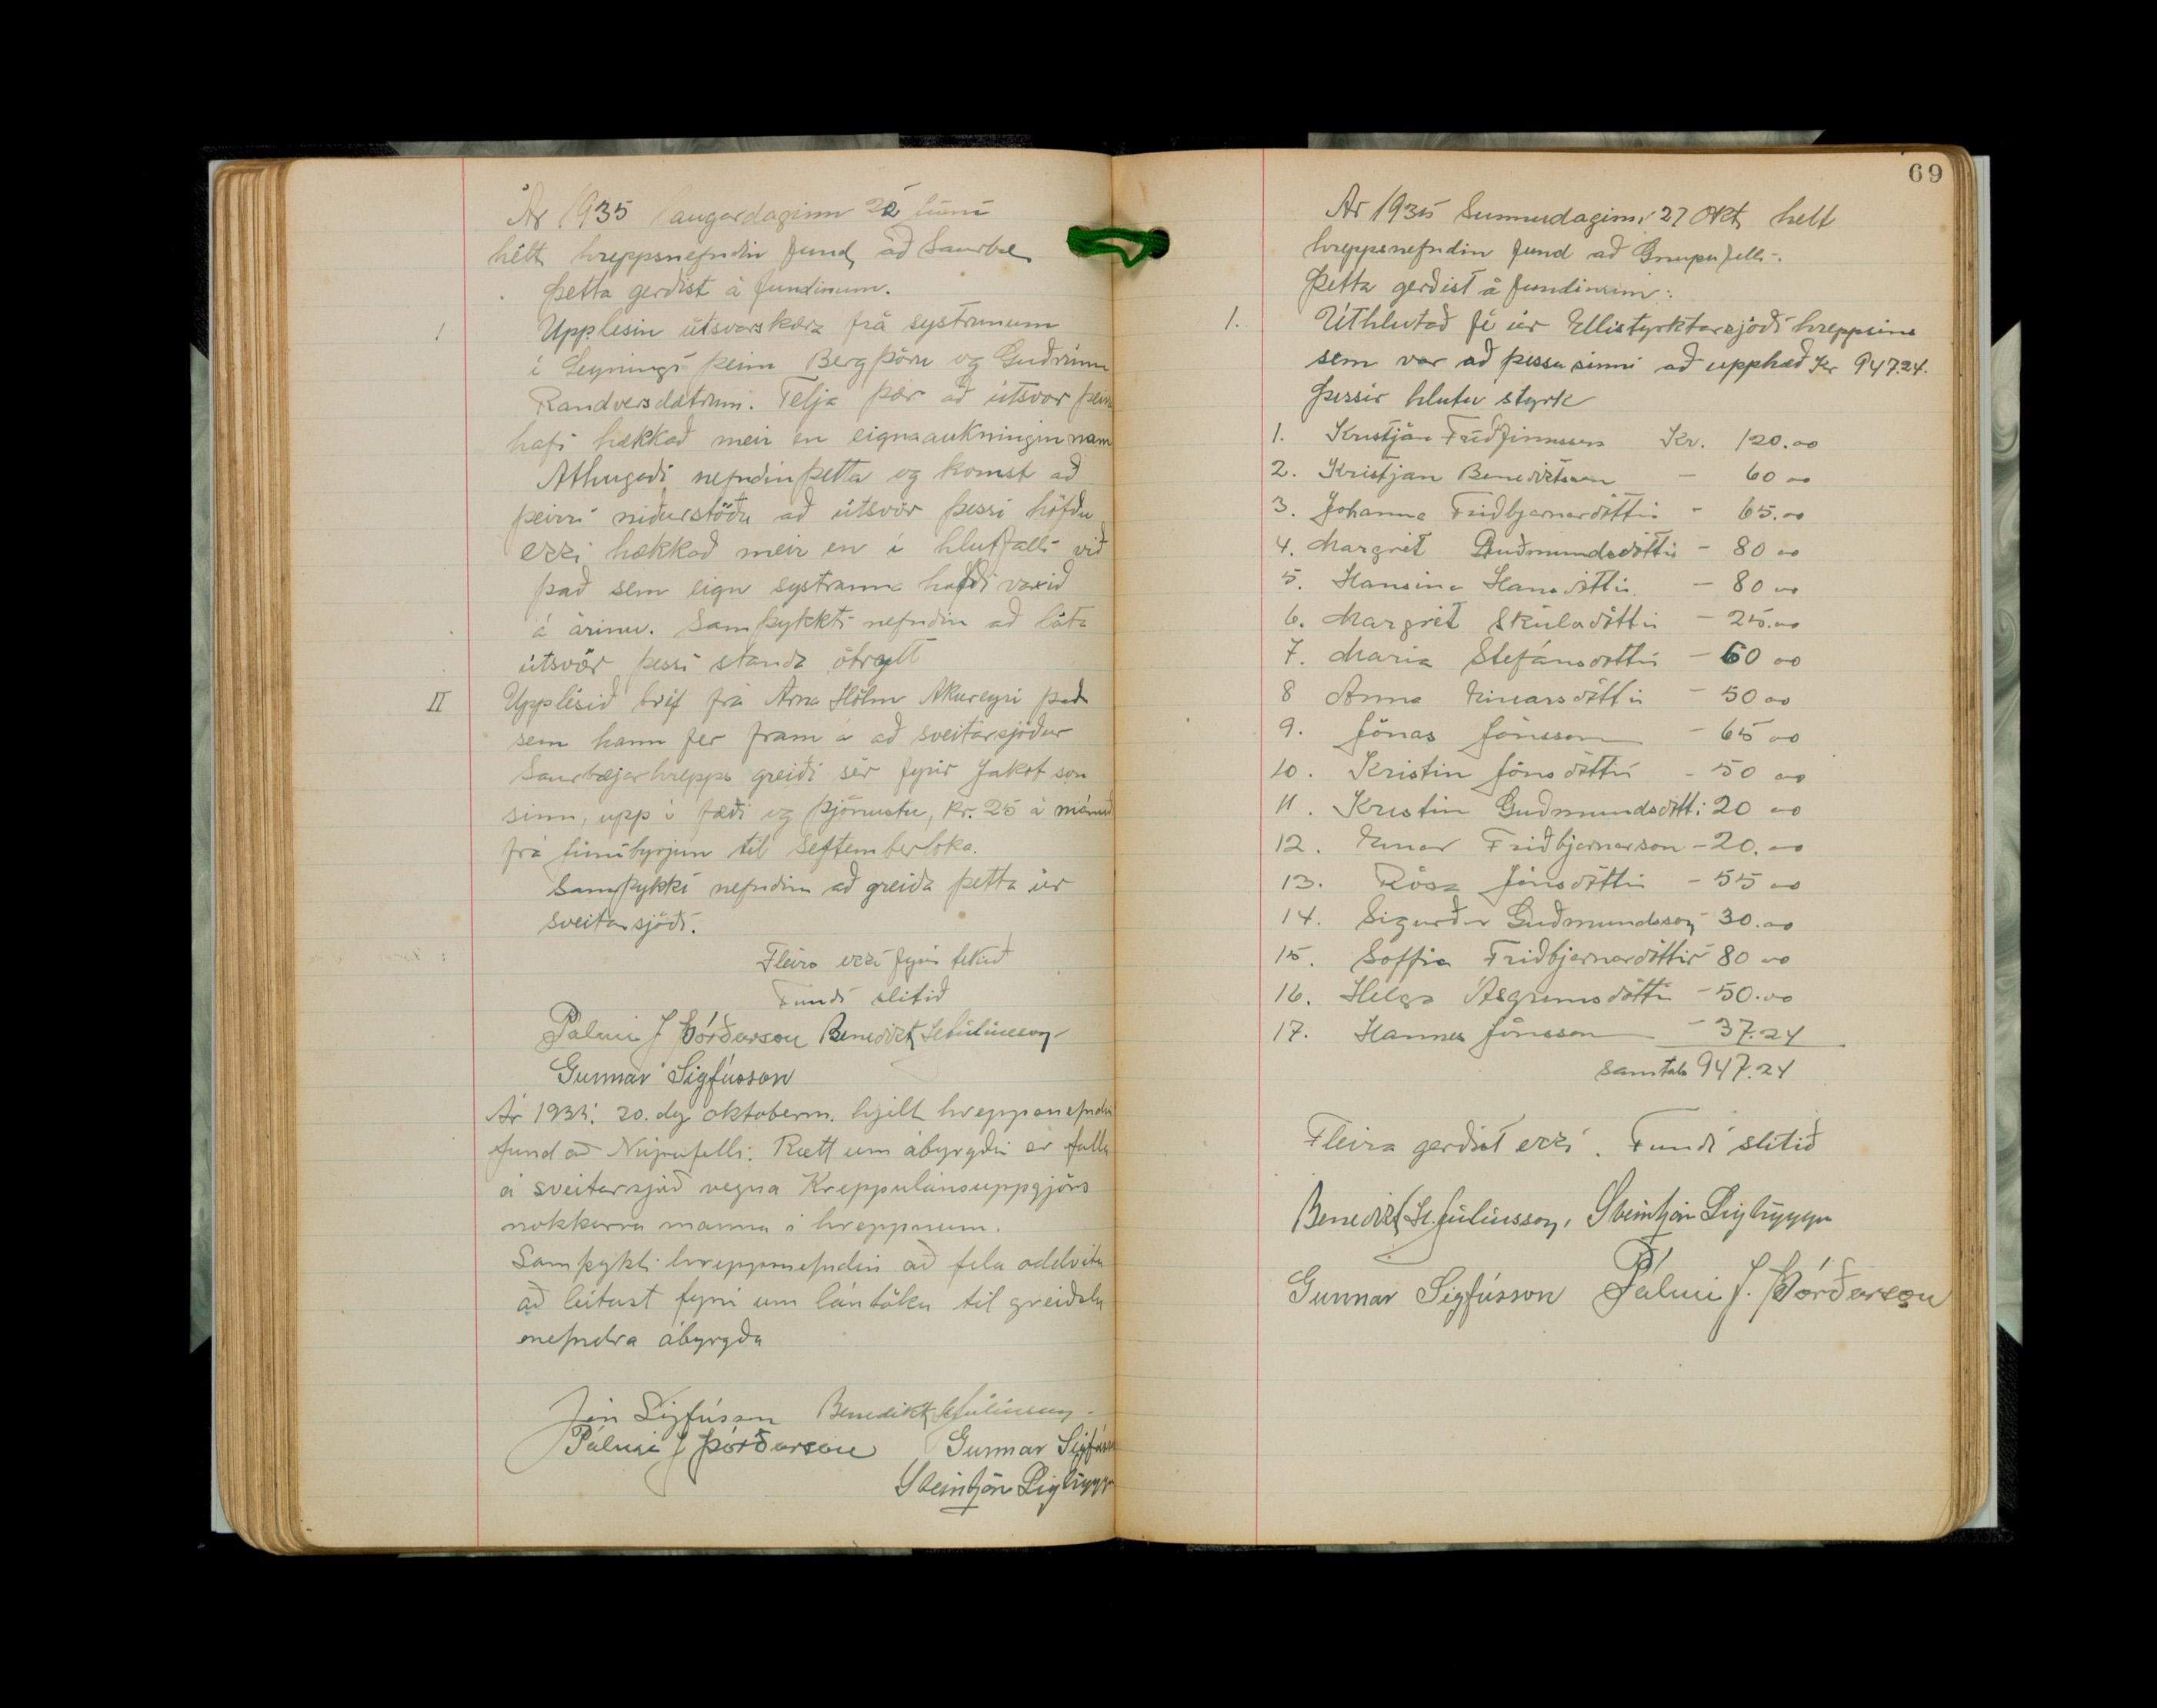 Ár 1935 laugardaginn 22 júní
hélt hreppsnefndin fund að Saurbæ
Þetta gerdist á fundinum.
1 Upplesin útsvarskæra frá systrunum
í Leyningi þeim Bergþóru og Guðrúnu
Randversdætrum. Telja þær að útsvar þeirra
hafi hækkað meir en eignaaukningin nam
Athugadi nefndin þetta og komst að
þeirri niðurstöðu að útsvör þessi höfðu
ekki hækkað meir en í hlutfalli við
það sem eign systranna hafði vaxið
á árinu. Samþykkti nefndin að láta
útsvör þessi standa óbreytt
II Upplesið bréf frá Árna Hólm Akureyri það
sem hann fer fram á að sveitarsjóður
Saurbæjarhrepps greiði sér fyrir Jakob son
sinn, upp í fæði og þjónustu, kr. 25 á mánuð
frá júníbyrjun til Septemberloka.
Samþykkti nefndin að greiða þetta úr
sveitarsjóði.
Fleira ekki fyrir tekið
Fundi slitið
Pálmi J Þórðarson Benedikt Júlíusson
Gunnar Sigfússon
Ár 1935. 20. dag októberm. hjelt hreppsnefndin
fund að Núpufelli. Rætt um ábyrgðir er falla
á sveitarsjóð vegna Kreppulánsuppgjörs
nokkurra manna í hreppnum.
Samþykti hreppsnefndin að fela oddvita
að leitast fyrir um lántöku til greiðslu
ánefndra ábyrgða
Jón Sigfússon Benedikt Júlíusson.
Pálmi J Þórðarson Gunnar Sigfússon
Steinþór Sigtryggs
69
Ár 1935 Sunnudaginn 27 Okt. helt
hreppsnefndin fund að Gnúpufelli.
Þetta gerðist á fundinum:
1. Úthlutað fé úr Ellistyrktarsjóði hreppsins
sem var að þessu sinni að upphæð Kr 947.24.
Þessir hlutu styrk
1. Kristján Friðfinnsson Kr. 120.00
2. Kristjan Benediktsson - 60 00
3. Johanna Friðbjarnardóttir - 65.00
4. Margrét Guðmundsdóttir - 80 00
5. Hansína Hansdóttir. - 80 00
6. Margrét Skúladóttir - 25.00
7. María Stefánsdóttir - 60 00
8 Anna Einarsdóttir - 50 00
9. Jónas Jónsson - 65 00
10. Kristín Jónsdóttir - 50 00
11. Kristín Guðmundsdótt: 20 00
12. Einar Friðbjarnarson - 20.00
13. Rósa Jónsdóttir - 55 00
14. Sigurður Guðmundsson - 30.00
15. Soffía Friðbjarnardóttir 80 00
16. Helga Ásgrímsdóttir - 50.00
17. Hannes Jónsson - 37.24
Samtals 947.24
Fleira gerðist ekki. Fundi slitið
Benedikt Júlíusson, Steinþór Sigtryggs
Gunnar Sigfússon Pálmi J. Þórðarson